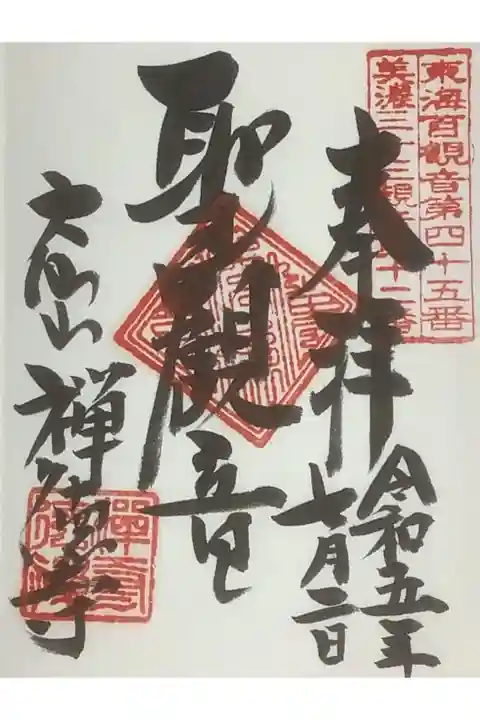 東海百観音第四十五番
美濃三十三観音十二番
奉拝
令和五年
七月二日
聖観音
大仙山
禅寺